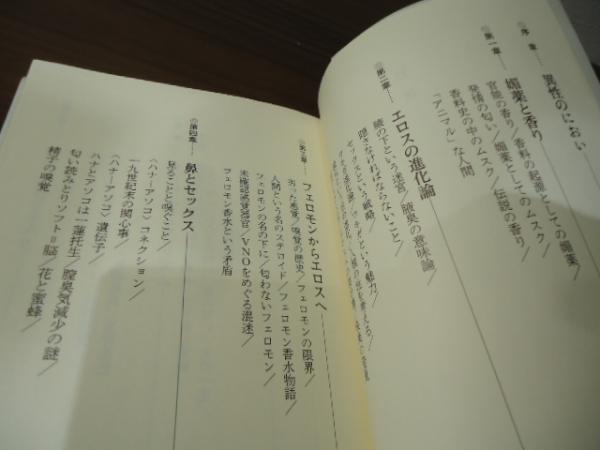 序章── 異性のにおい
第一章── 媚薬と香り
官能の香り／香料の起源としての媚薬／
発情の匂い／媚薬としてのムスク／
香料史の中のムスク／伝説の香り／
「アニマル」な人間
第二章── エロスの進化論
腋の下という迷宮／腋臭の意味論／
隠さなければならないこと／
セックスという戦略／
という魅力／
第三章── フェロモンからエロスへ
劣った感覚／嗅覚の歴史／フェロモンの限界／
人間という名のステロイド／フェロモン香水物語／
フェロモンの名の下に／匂わないフェロモン／
未確認感覚器官／VNOをめぐる混迷／
フェロモン香水という矛盾
第四章── 鼻とセックス
見ることと嗅ぐこと／
一九世紀末の関心事／
〈ハナ―アソコ〉コネクション／
〈ハナ―アソコ〉遺伝子／
ハナとアソコは一蓮托生／
匂い読みとりソフト＝脳／
膣臭気減少の謎／
花と蜜蜂／
精子の嗅覚